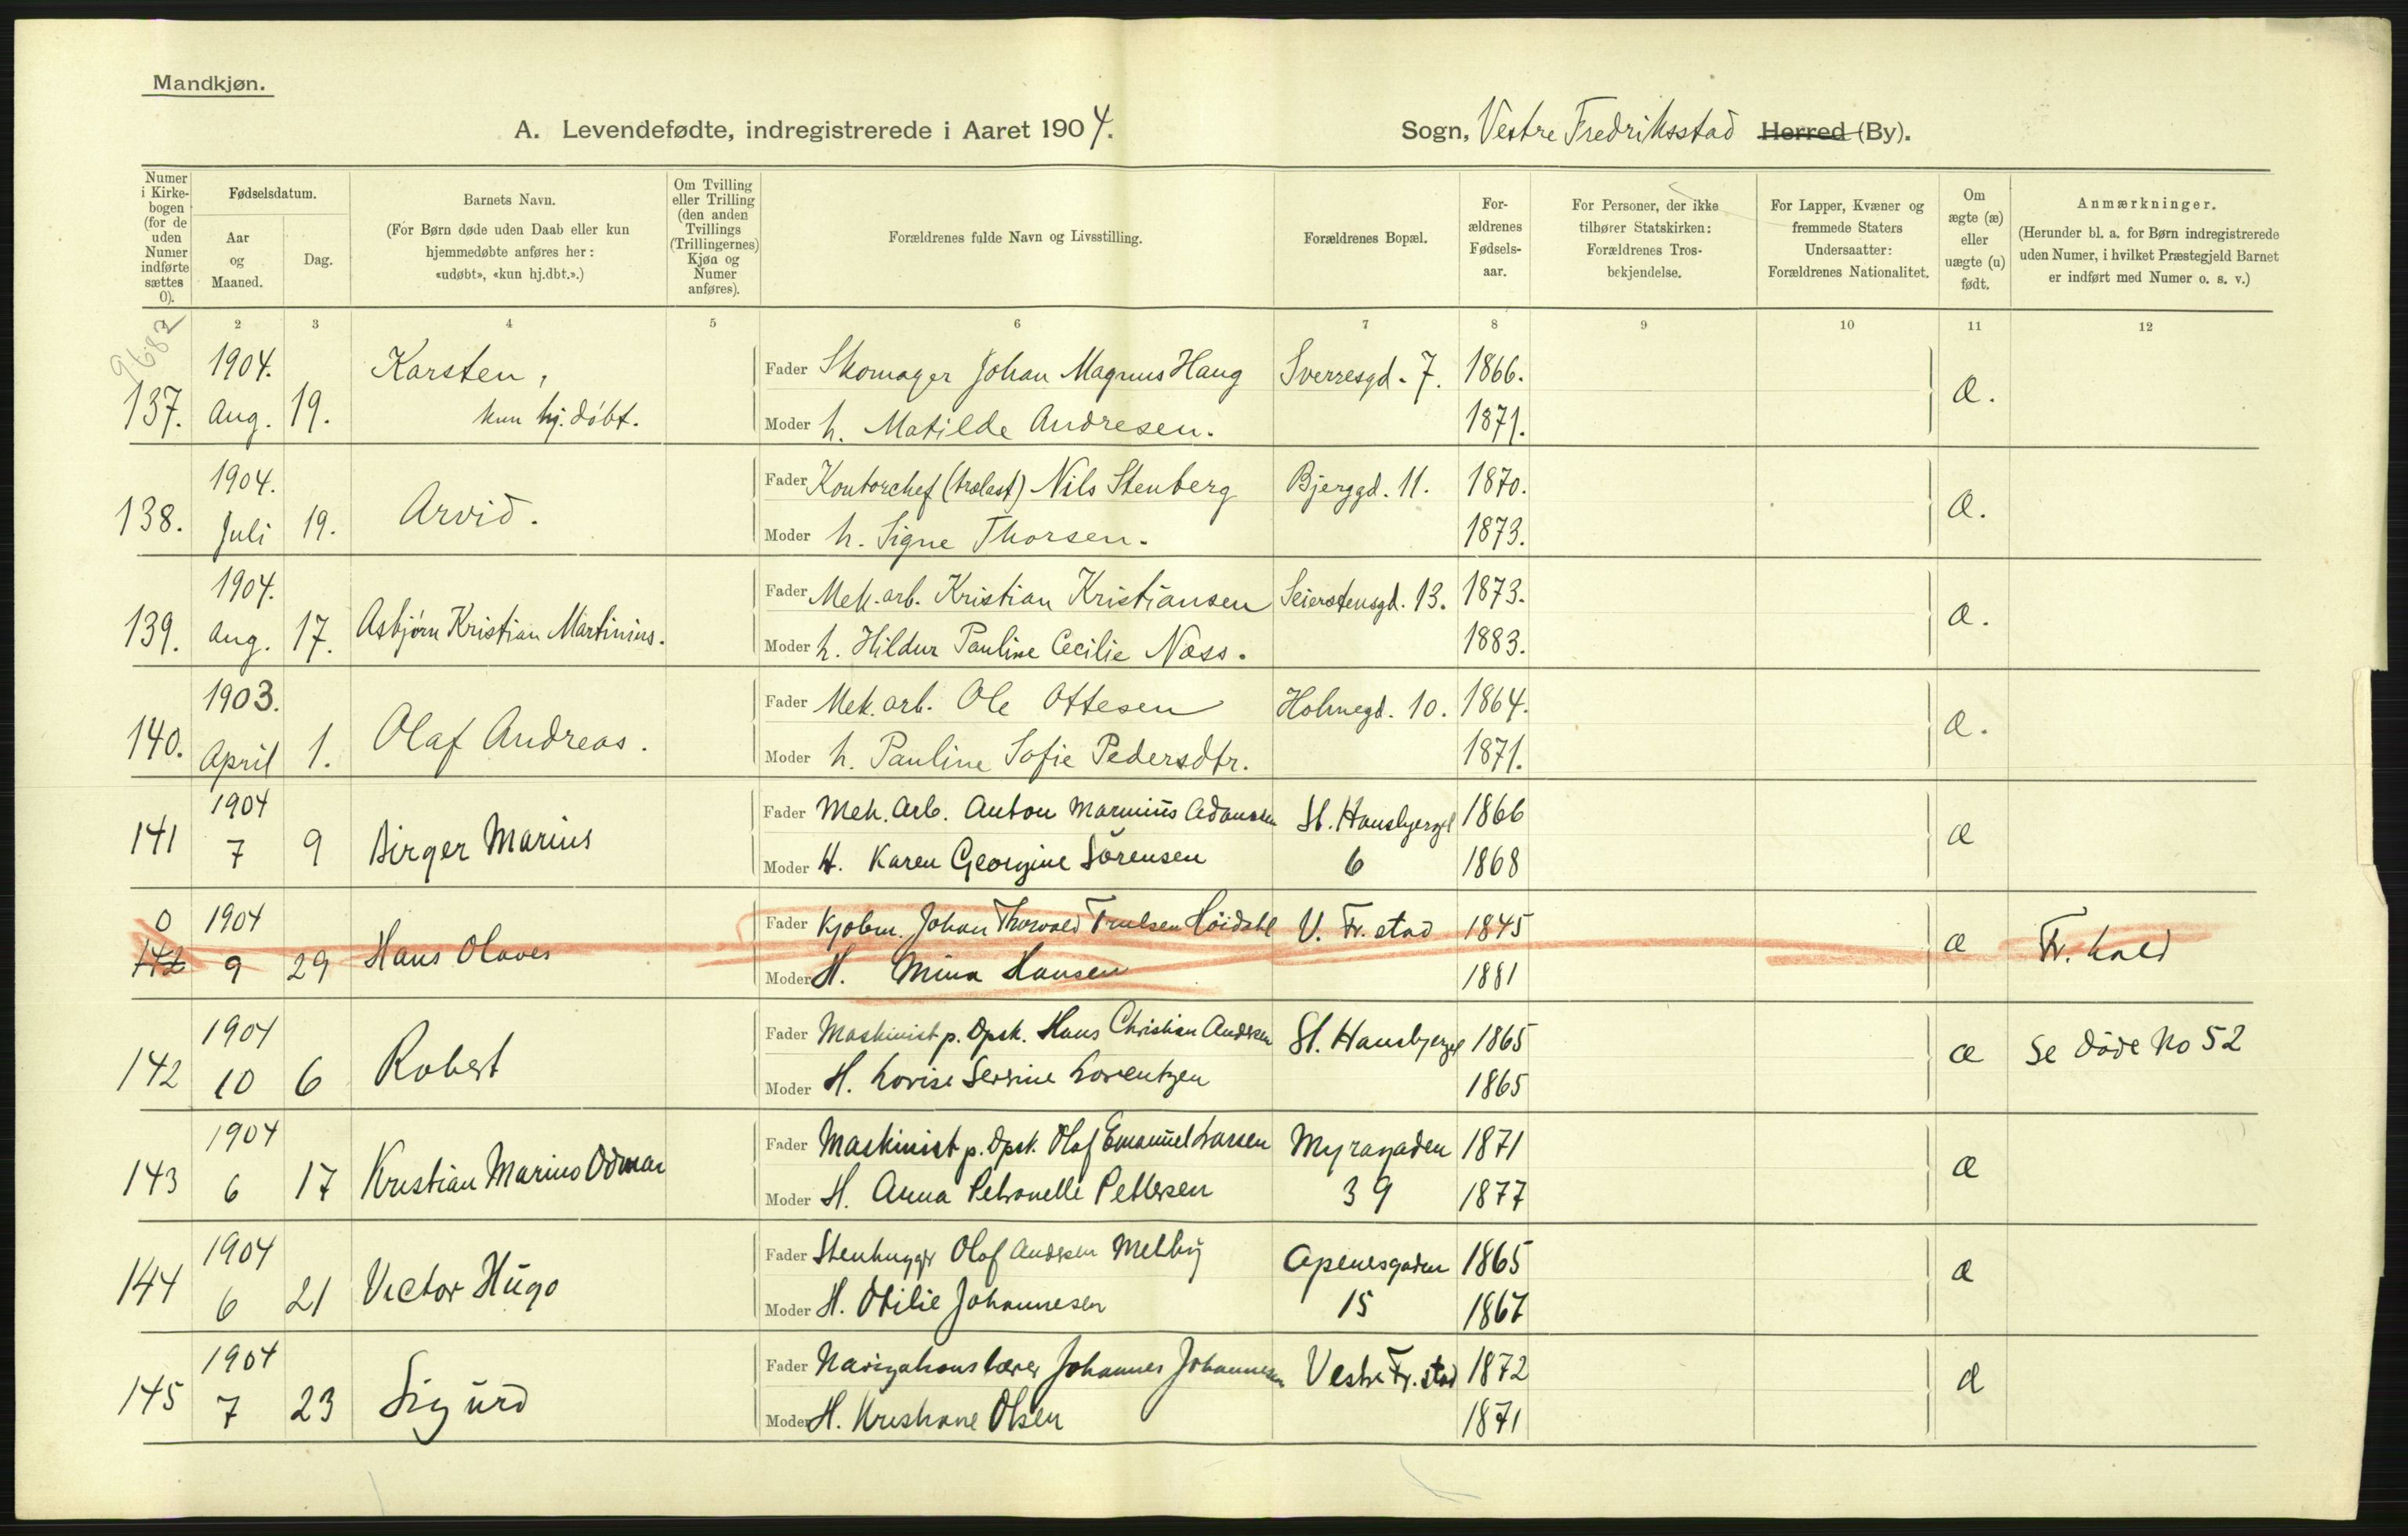 Mandkjøn.
A. Levendefødte, indregistrerede i Aaret 1904.
Sogn, Vestre Fredriksstad Herred (By).
Numer i Kirkebogen (for de uden Numer indførte sættes 0).
Fødselsdatum.
Aar og Maaned.
Dag.
Barnets Navn.
(For Børn døde uden Daab eller kun hjemmedøbte anføres her: «udøbt», «kun hj.dbt.».)
Om Tvilling eller Trilling (den anden Tvillings (Trillingernes) Kjøn og Numer anføres).
Forældrenes fulde Navn og Livsstilling.
Forældrenes Bopæl.
For-ældrenes Fødsels-aar.
For Personer, der ikke tilhører Statskirken: Forældrenes Tros-bekjendelse.
For Lapper, Kvæner og fremmede Staters Undersaatter: Forældrenes Nationalitet.
Om ægte (æ) eller uægte (u) født.
Anmærkninger.
(Herunder bl. a. for Børn indregistrerede uden Numer, i hvilket Præstegjeld Barnet er indført med Numer o. s. v.)
2 3 4 5 6 7 8 9 10 11 12
9682
1904. Karsten, Fader Skomager Johan Magnus Haug Sverresgd. 7. 1866.
137. Aug. 19. kun hj. døbt. Moder h. Matilde Andresen. 1871. æ.
1904. Fader Kontorchef (trælast) Nils Stenberg Bjerggd. 11. 1870.
138. Juli 19. Arvid. Moder h. Signe Thorsen. 1873. æ.
1904. Fader Mek. arb. Kristian Kristiansen Seierstensgd. 13. 1873.
139. Aug. 17. Asbjørn Kristian Martinius. Moder h. Hildur Pauline Cecilie Næss. 1883. æ.
1903. Fader Mek. arb. Ole Ottesen Holmegd. 10. 1864.
140. April 1. Olaf Andreas. Moder h. Pauline Sofie Pedersdtr. 1871. æ.
1904 Fader Mek. Arb. Anton Marinius Adamsen St. Hansbjergd 1866
141 7 9 Birger Marius Moder H. Karen Georgine Sörensen 6 1868 æ
0 1904 Fader Kjøbm. Johan Thorvald Trulsen Höidahl V. Fr. stad 1845
142 9 29 Hans Olaves Moder H. Mina Hansen 1881 æ Fr. hald
1904 Fader Maskinist p. Dpsk. Hans Christian Andersen St. Hansbjergd 1865
142 10 6 Robert Moder H. Lovise Serine Lorentzen 1865 æ Se døde No 52
1904 Fader Maskinist p. Dpsk. Olaf Emanuel Larsen Myragaden 1871
143 6 17 Kristian Marius Odmar Moder H. Anna Petronelle Pettersen 39 1877 æ
1904 Fader Stenhugger Olaf Andersen Melby Apenesgaden 1865
144 6 21 Victor Hugo Moder H. Otilie Johannesen 15 1867 æ
1904 Fader Navigationslærer Johannes Johannesen Vestre Fr. stad 1872
145 7 23 Sigurd Moder H. Kristiane Olsen 1871 æ